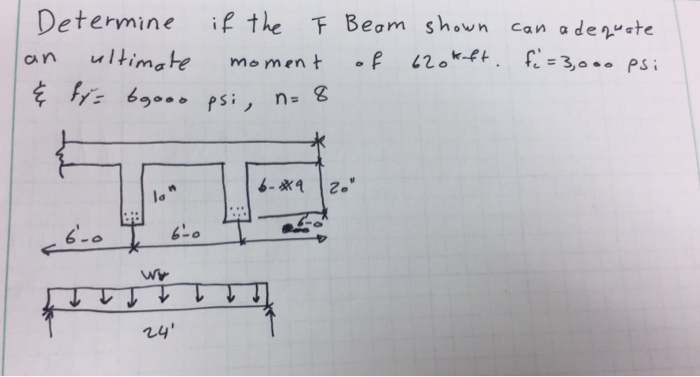 Determine if the T Beam shown can adequate
an ultimate moment of 620 k-ft. f'c = 3,000 psi
& fy = 60000 psi, n = 8
10"
6-#9
20"
6'-0
6'-0
6-0
24'